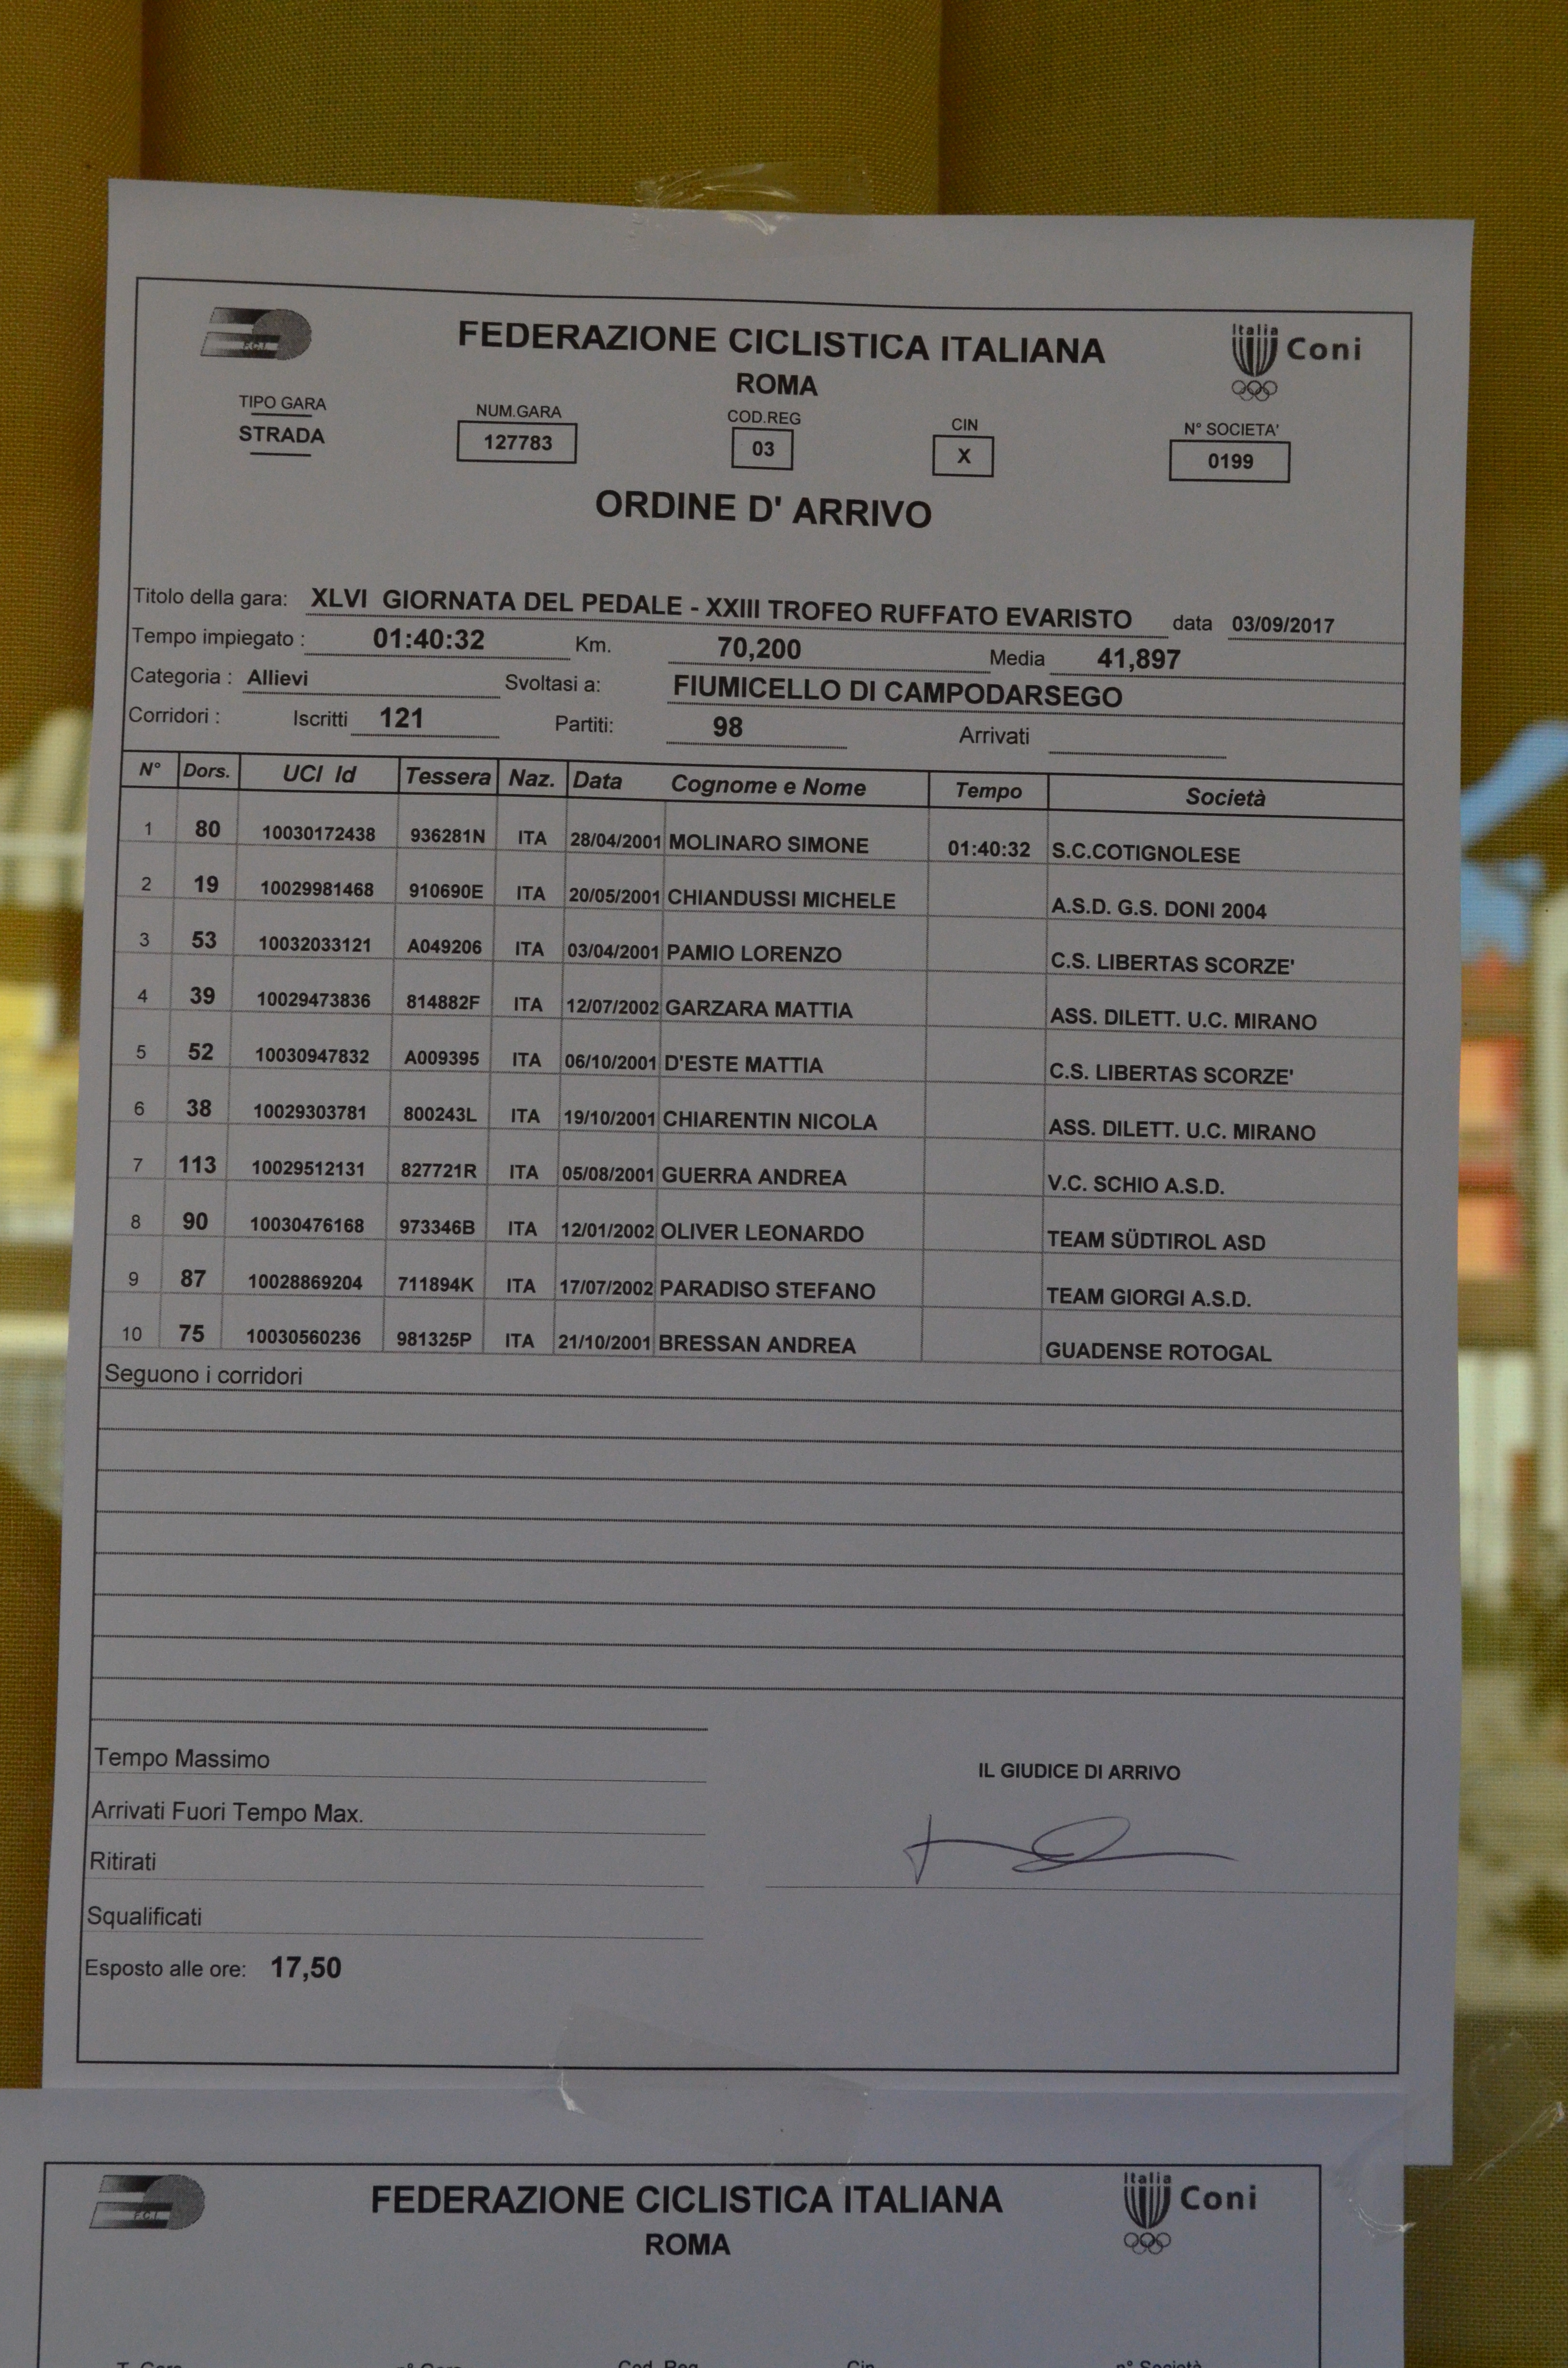 F.C.I.
FEDERAZIONE CICLISTICA ITALIANA
Italia
Coni
ROMA
TIPO GARA NUM.GARA COD.REG CIN N° SOCIETA'
STRADA 127783 03 X 0199
ORDINE D' ARRIVO
Titolo della gara: XLVI GIORNATA DEL PEDALE - XXIII TROFEO RUFFATO EVARISTO data 03/09/2017
Tempo impiegato : 01:40:32 Km. 70,200 Media 41,897
Categoria : Allievi Svoltasi a: FIUMICELLO DI CAMPODARSEGO
Corridori : Iscritti 121 Partiti: 98 Arrivati
N° Dors. UCI Id Tessera Naz. Data Cognome e Nome Tempo Società
1 80 10030172438 936281N ITA 28/04/2001 MOLINARO SIMONE 01:40:32 S.C.COTIGNOLESE
2 19 10029981468 910690E ITA 20/05/2001 CHIANDUSSI MICHELE A.S.D. G.S. DONI 2004
3 53 10032033121 A049206 ITA 03/04/2001 PAMIO LORENZO C.S. LIBERTAS SCORZE'
4 39 10029473836 814882F ITA 12/07/2002 GARZARA MATTIA ASS. DILETT. U.C. MIRANO
5 52 10030947832 A009395 ITA 06/10/2001 D'ESTE MATTIA C.S. LIBERTAS SCORZE'
6 38 10029303781 800243L ITA 19/10/2001 CHIARENTIN NICOLA ASS. DILETT. U.C. MIRANO
7 113 10029512131 827721R ITA 05/08/2001 GUERRA ANDREA V.C. SCHIO A.S.D.
8 90 10030476168 973346B ITA 12/01/2002 OLIVER LEONARDO TEAM SÜDTIROL ASD
9 87 10028869204 711894K ITA 17/07/2002 PARADISO STEFANO TEAM GIORGI A.S.D.
10 75 10030560236 981325P ITA 21/10/2001 BRESSAN ANDREA GUADENSE ROTOGAL
Seguono i corridori
Tempo Massimo
IL GIUDICE DI ARRIVO
Arrivati Fuori Tempo Max.
Ritirati
Squalificati
Esposto alle ore: 17,50
F.C.I.
FEDERAZIONE CICLISTICA ITALIANA
Italia
Coni
ROMA
T. Gara n° Gara Cod. Reg Cin n° Società